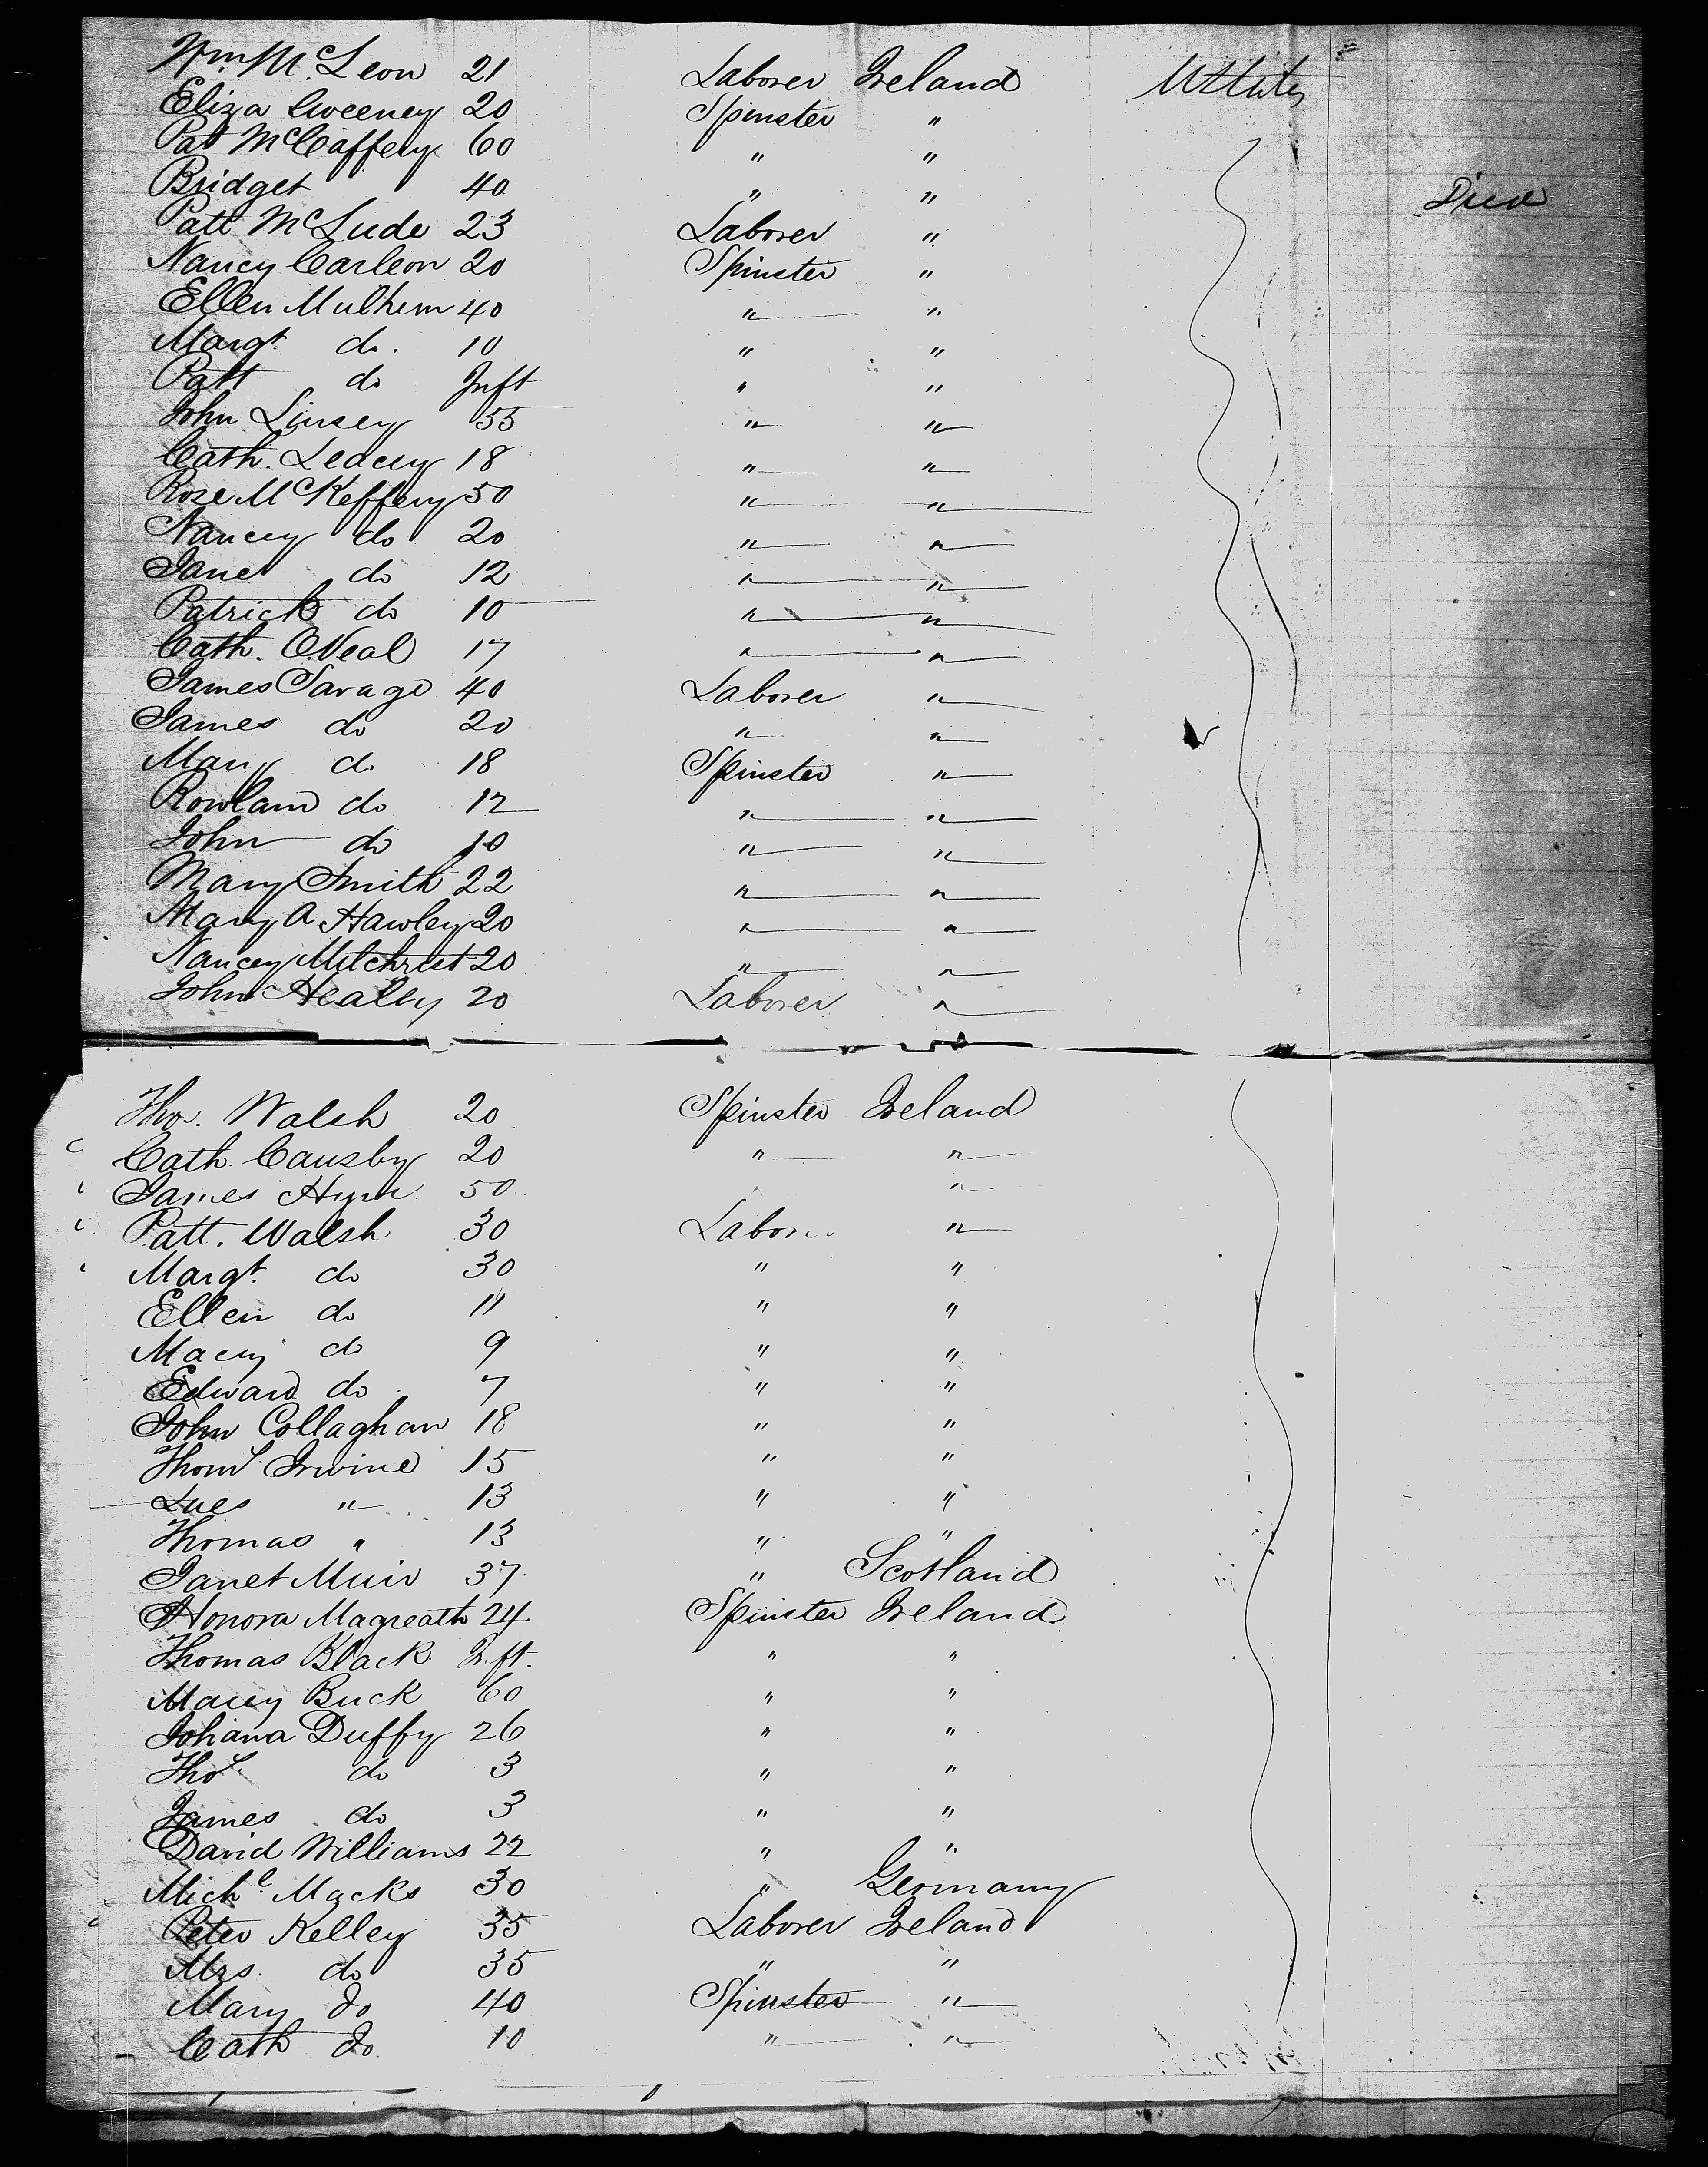 Wm. McLeon 21 Laborer Ireland U States
Eliza Sweeney 20 Spinster "
Pat McCaffery 60 " "
Bridget 40 " " Died
Patt McLude 23 Laborer "
Nancy Carleon 20 Spinster "
Ellen Mulhern 40 " "
Margt. do. 10 " "
Patt do Inft " "
John Linsey 55 " "
Cath. Leacey 18 " "
Rose McKeffery 50 " "
Nancey do 20 " "
Jane do 12 " "
Patrick do 10 " "
Cath. ONeal 17 " "
James Savage 40 Laborer "
James do 20 " "
Mary do 18 Spinster "
Rowland do 12 " "
John do 10 " "
Mary Smith 22 " "
Mary A Hawley 20 " "
Nancey Milchrist 20 " "
John Healey 20 Laborer "
Thos. Walsh 20 Spinster Ireland
Cath. Causby 20 " "
James 50 " "
Patt. Walsh 30 Laborer "
Margt. do 30 " "
Ellen do 11 " "
Macey do 9 " "
Edward do 7 " "
John Collaghan 18 " "
Thoms Irwine 15 " "
" 13 " "
Thomas " 13 " "
Janet Muir 37 " Scotland
Honora Magreath 24 Spinster Ireland
Thomas Black Inft. " "
Macey Buck 60 " "
Johana Duffy 26 " "
Thos do 3 " "
James do 3 " "
David Williams 22 " "
Michl. Macks 30 " Germany
Peter Kelley 35 Laborer Ireland
Mrs. do 35 " "
Mary do 40 Spinster "
Cath do 10 " "